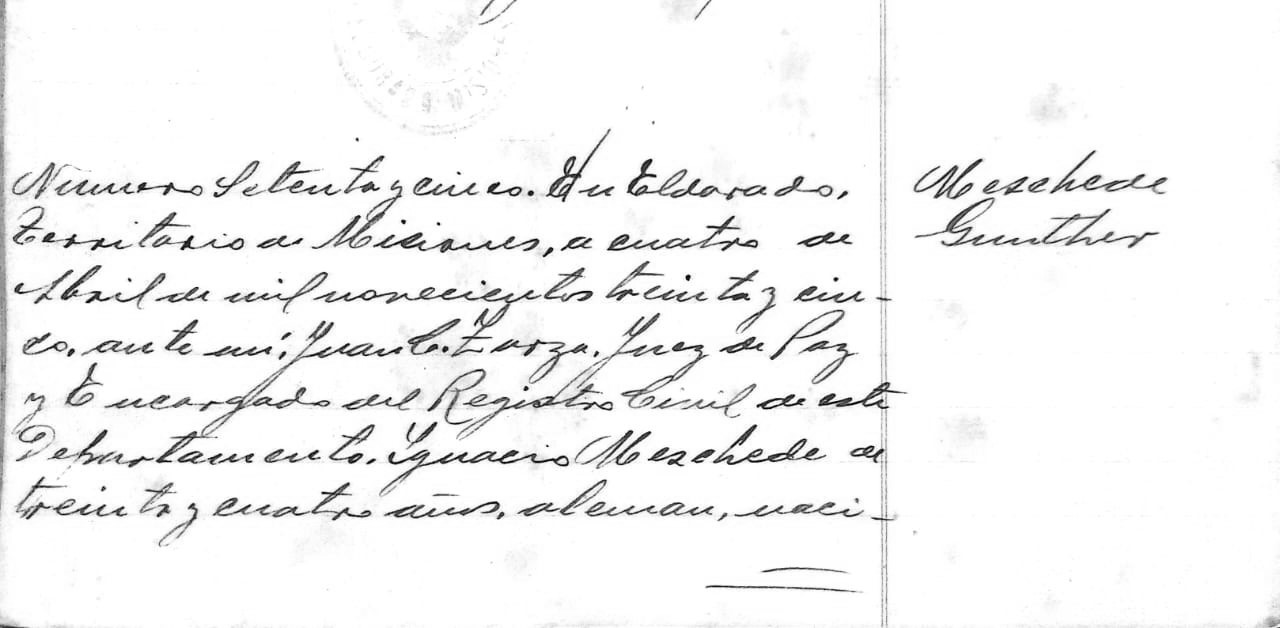 Numero Setenta y cinco. En Eldorado,
Territorio de Misiones, a cuatro de
Abril de mil novecientos treinta y cin-
co, ante mi, Juan C. Zarza, Juez de Paz
y Encargado del Registro Civil de este
Departamento, Ignacio Meschede de
treinta y cuatro años, aleman, naci-
Meschede
Gunther